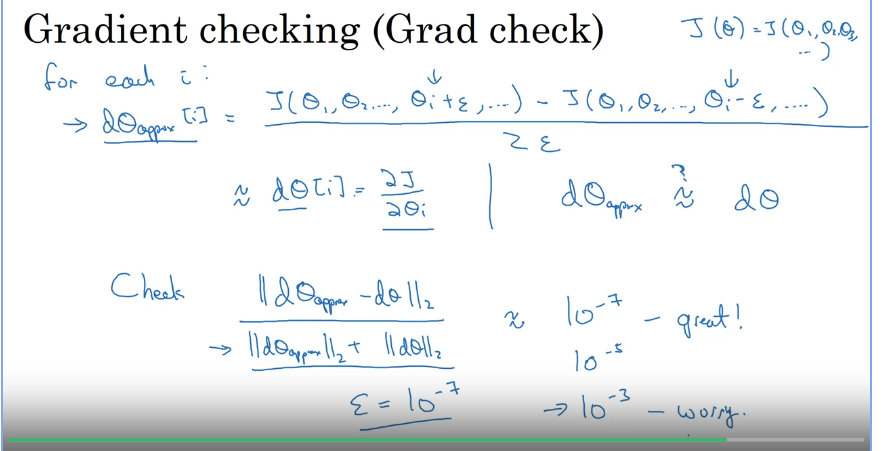 Gradient checking (Grad check)
J(θ) = J(θ₁, θ₂, θ₃, ...)
for each i:
→ dθapprox[i] = (J(θ₁, θ₂, ..., θi+ε, ...) - J(θ₁, θ₂, ..., θi-ε, ...)) / 2ε
≈ dθ[i] = ∂J/∂θi | dθapprox ≈? dθ
Check ‖dθapprox - dθ‖₂ / (‖dθapprox‖₂ + ‖dθ‖₂) ≈ 10⁻⁷ - great!
10⁻⁵
ε = 10⁻⁷ → 10⁻³ - worry.